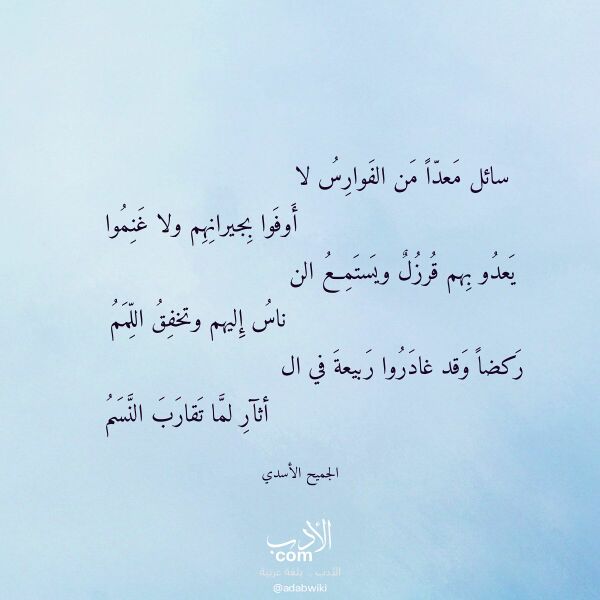 سائل مَعدّاً مَن الفَوارِسُ لا
أَوفَوا بِجيرانِهِم ولا غَنِمُوا
يَعدُو بِهم قُرزُلٌ ويَستَمِعُ الن
ناسُ إِليهم وتخفِقُ اللِّمَمُ
رَكضاً وَقد غادَرُوا رَبيعةَ في ال
أثآرِ لمَّا تَقارَبَ النَّسَمُ
الجميح الأسدي
الأدب
com
الأدب .. بلغة عربية
@adabwiki